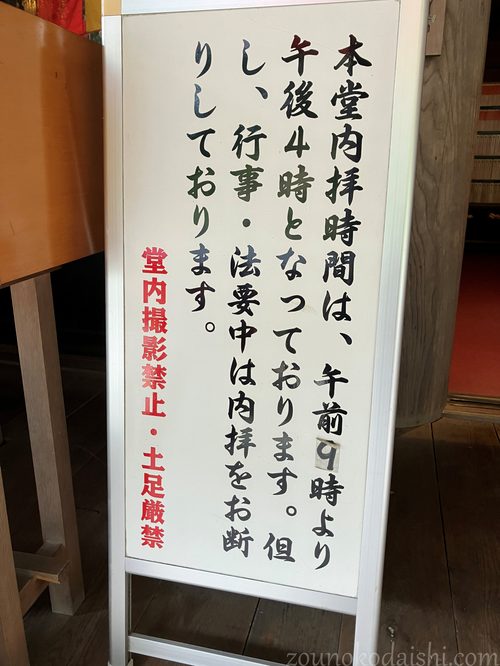 本堂内拝時間は、午前9時より
午後4時となっております。但
し、行事・法要中は内拝をお断
りしております。
堂内撮影禁止・土足厳禁
zounokodaishi.com